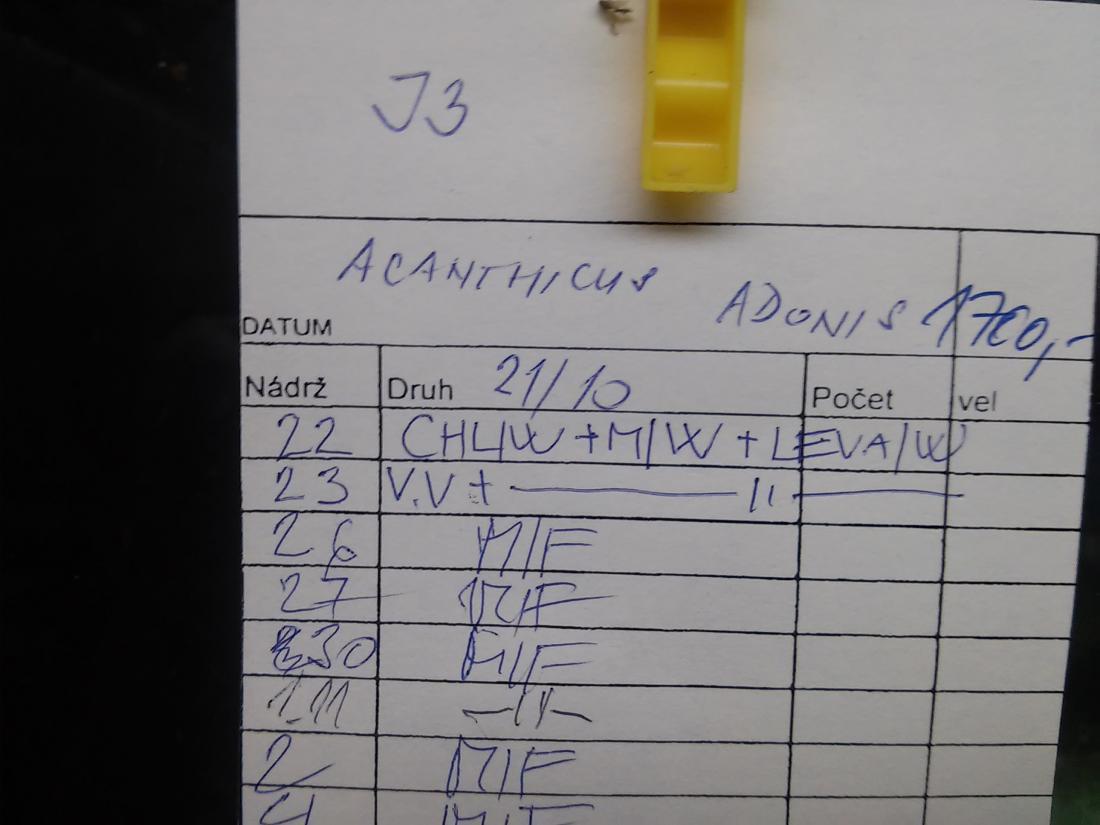 J3
ACANTHICUS
ADONIS 1700,-
DATUM
Nádrž Druh 21/10 Počet vel
22 CHL/W + M/W + LEVA/W
23 V.V + — 11 —
26 M/F
27 M/F
30 M/F
1.11 —11—
2 M/F
4 M/F